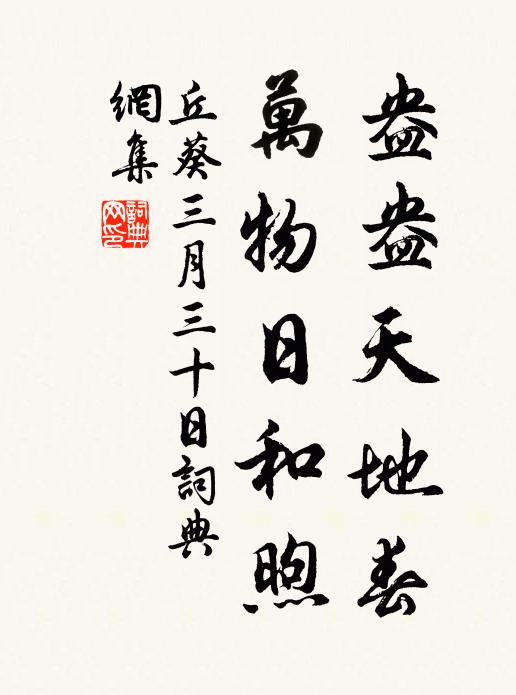 盎盎天地春
萬物日和煦
丘葵三月三十日詞典
網集
詞典
网印